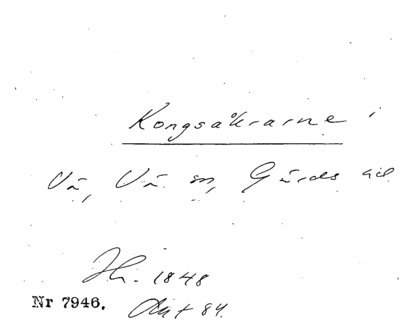 Kongsåkrarne i
Vä, Vä sn, Gärds hd
Hs. 1848
Nr 7946. Akt 84.